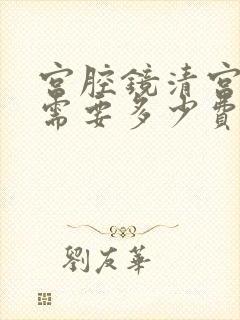 宫腔鏡清宫
需要多少費
劉友華